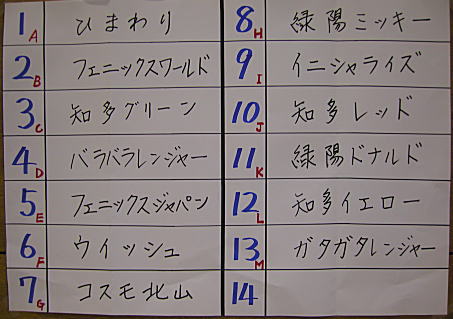 1 A ひまわり
2 B フェニックスワールド
3 C 知多グリーン
4 D バラバラレンジャー
5 E フェニックスジャパン
6 F ウイッシュ
7 G コスモ北山
8 H 緑陽ミッキー
9 I イニシャライズ
10 J 知多レッド
11 K 緑陽ドナルド
12 L 知多イエロー
13 M ガタガタレンジャー
14